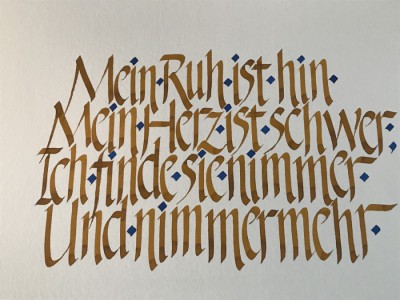 Mein·Ruh·ist·hin·
Mein·Herz·ist·schwer;
Ich·finde·sie·nimmer·
Und·nimmermehr·